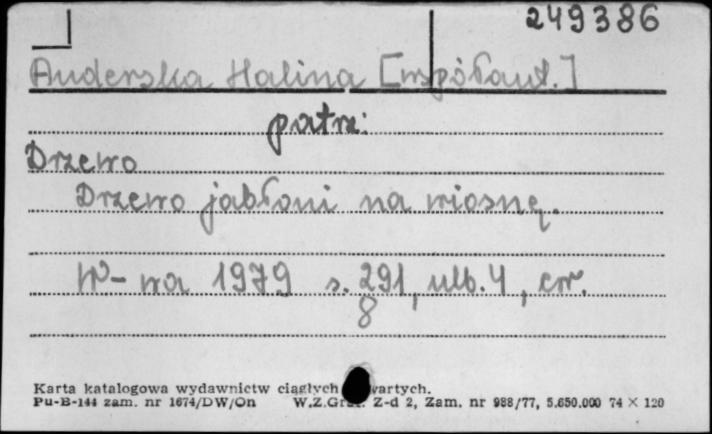 249386
Auderska Halina [współaut.]
patrz:
Drzewo
Drzewo jabłoni na wiosnę.
W-wa 1979 s. 291, ulb. 4, err.
8
Karta katalogowa wydawnictw ciągłych wartych.
Pu-B-144 zam. nr 1674/DW/On W.Z.Graf. Z-d 2, Zam. nr 988/77, 5.650.000 74 × 120